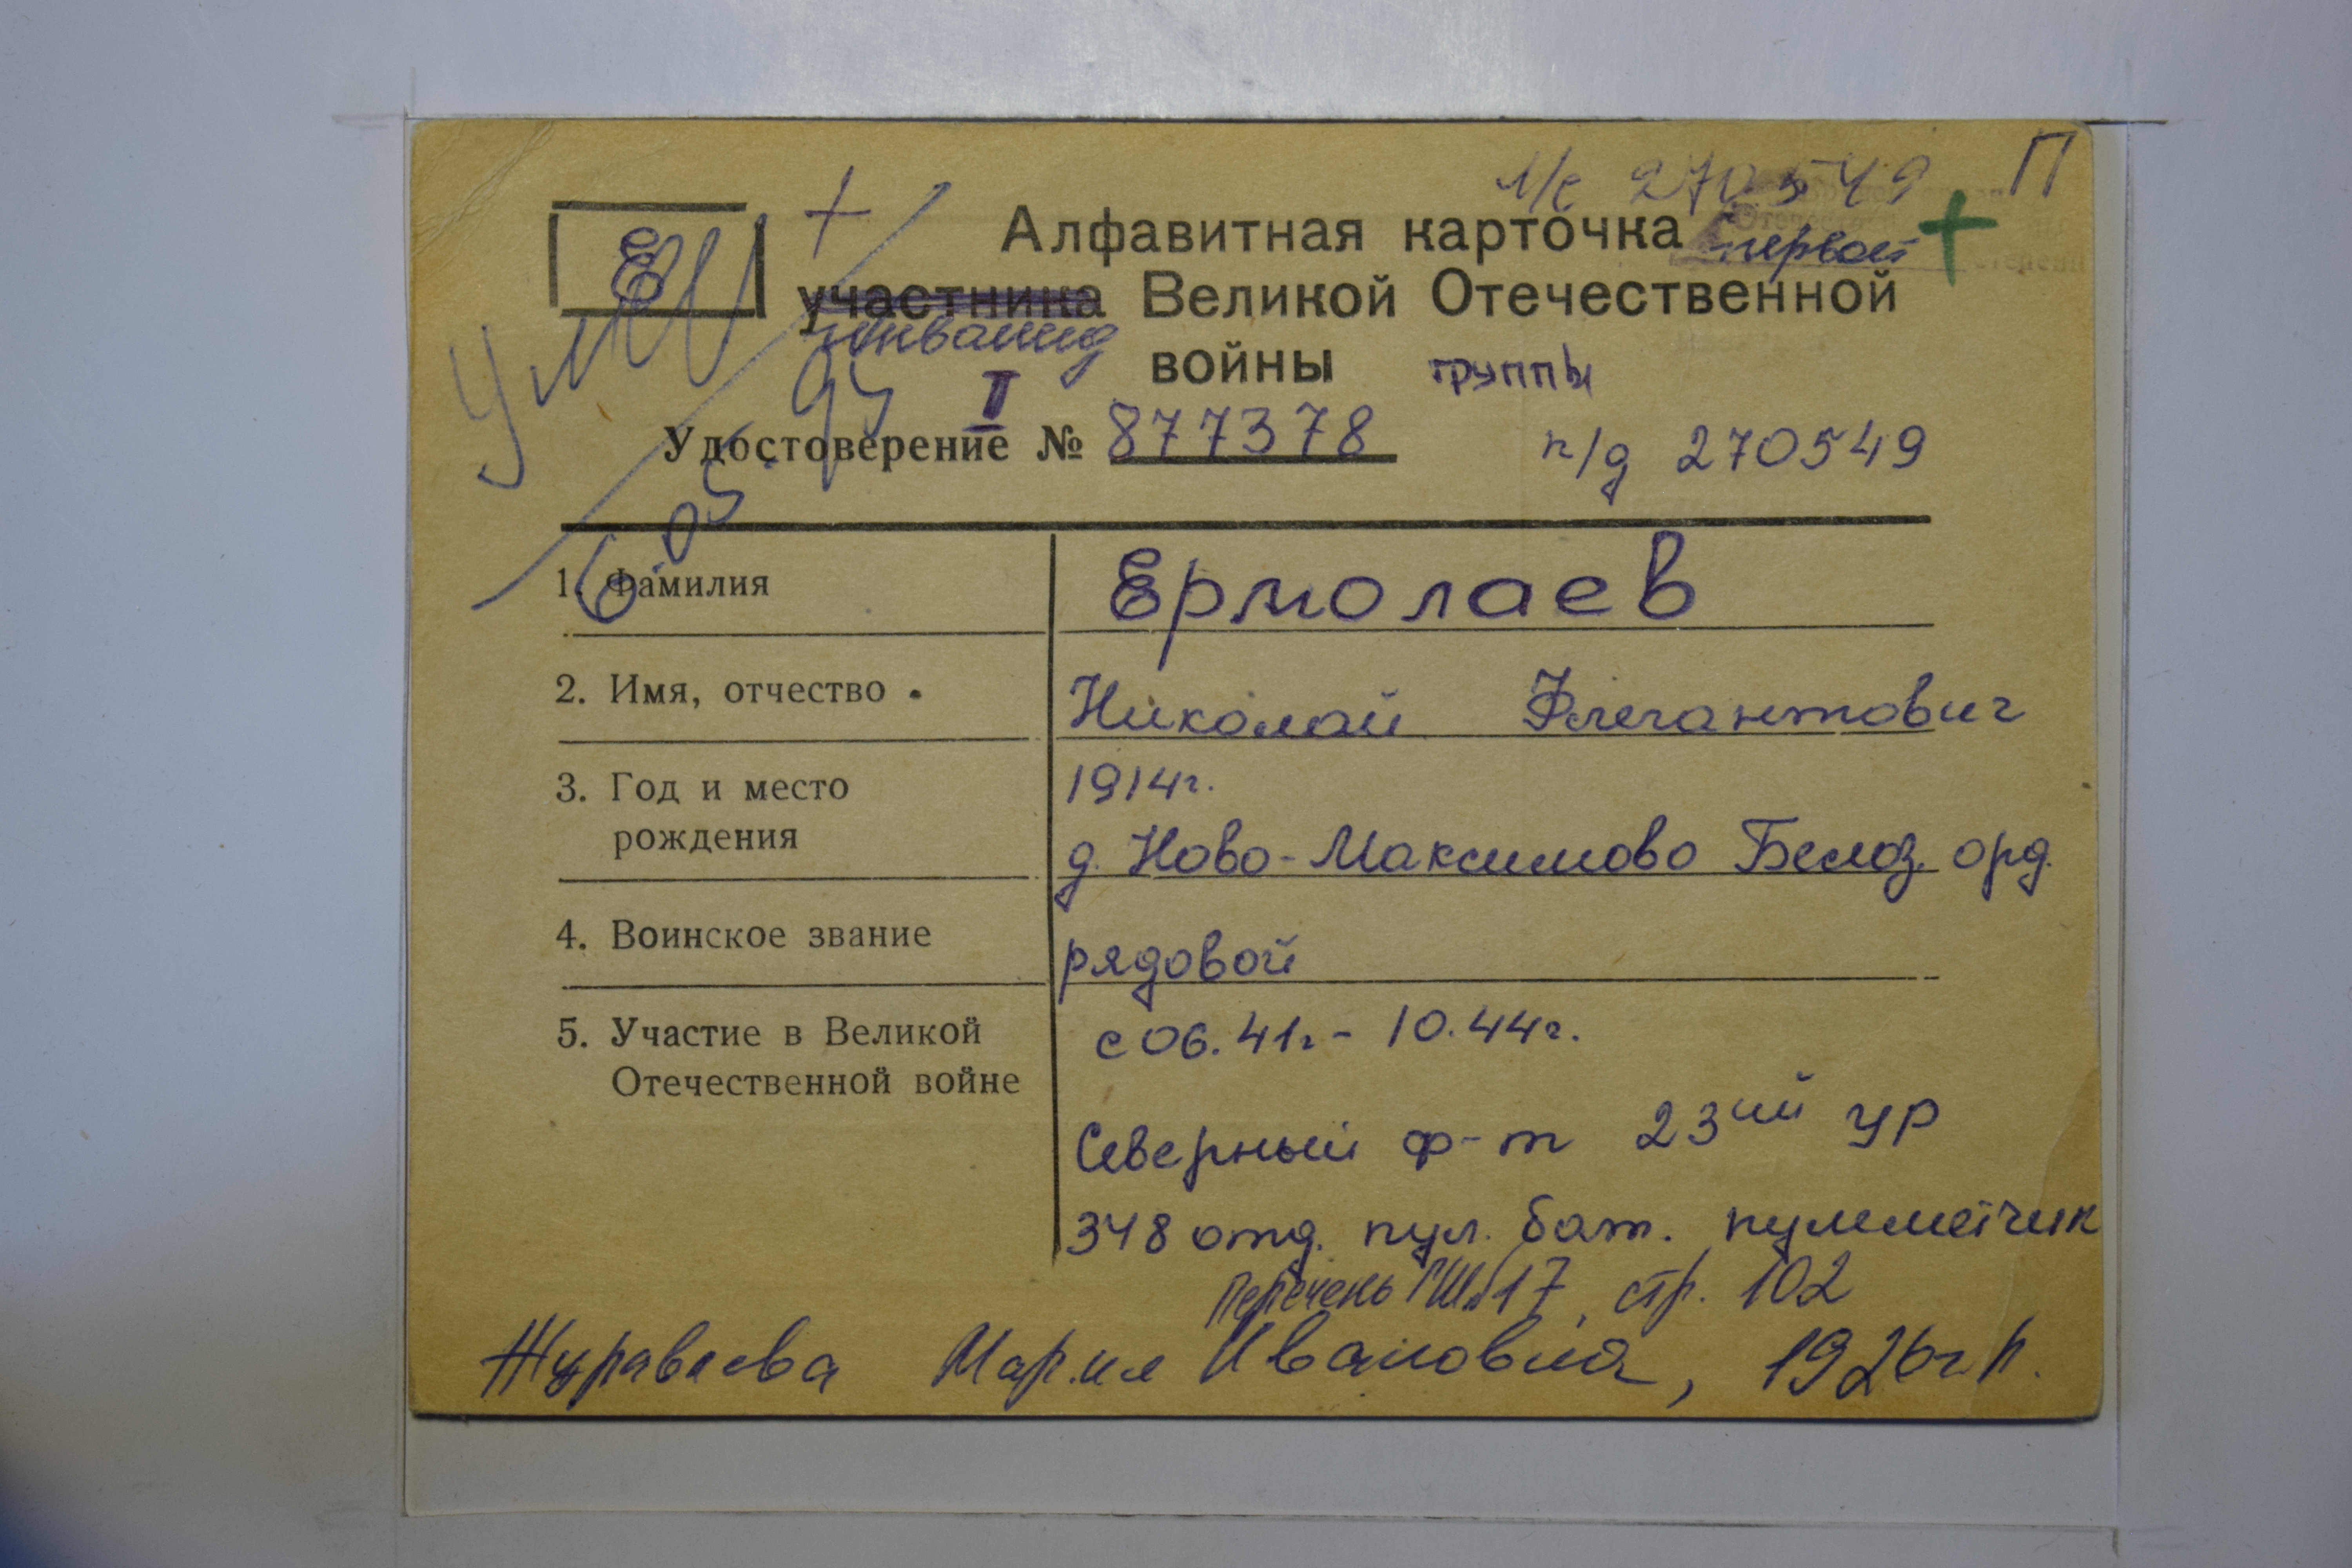 М/с 270549 П
Е +
Алфавитная карточка первой +
участника Великой Отечественной
инвалид
войны группы
II
Удостоверение № 877378 п/д 270549
умер 6.05.94
1. Фамилия Ермолаев
2. Имя, отчество Николай Флегантович
3. Год и место 1914г.
рождения д. Ново-Максимово Белоз. орд.
4. Воинское звание рядовой
5. Участие в Великой с 06.41г. - 10.44г.
Отечественной войне
Северный ф-т 23ий ур
348 отд. пул. бат. пулеметчик
Перечень ГШ №17, стр. 102
Журавлева Мария Ивановна, 1926г.р.